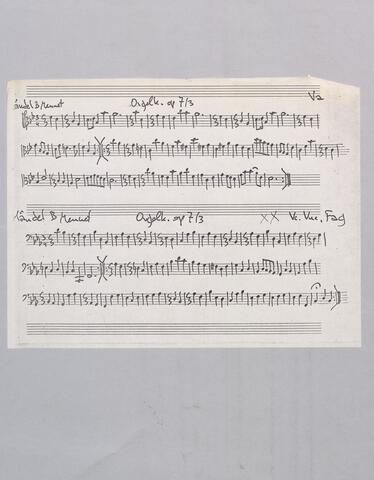 Händel B Menuet Orgelk. op 7/3 Va
Händel B Menuet Orgelk. op 7/3 XX Vc. Vne, Fag